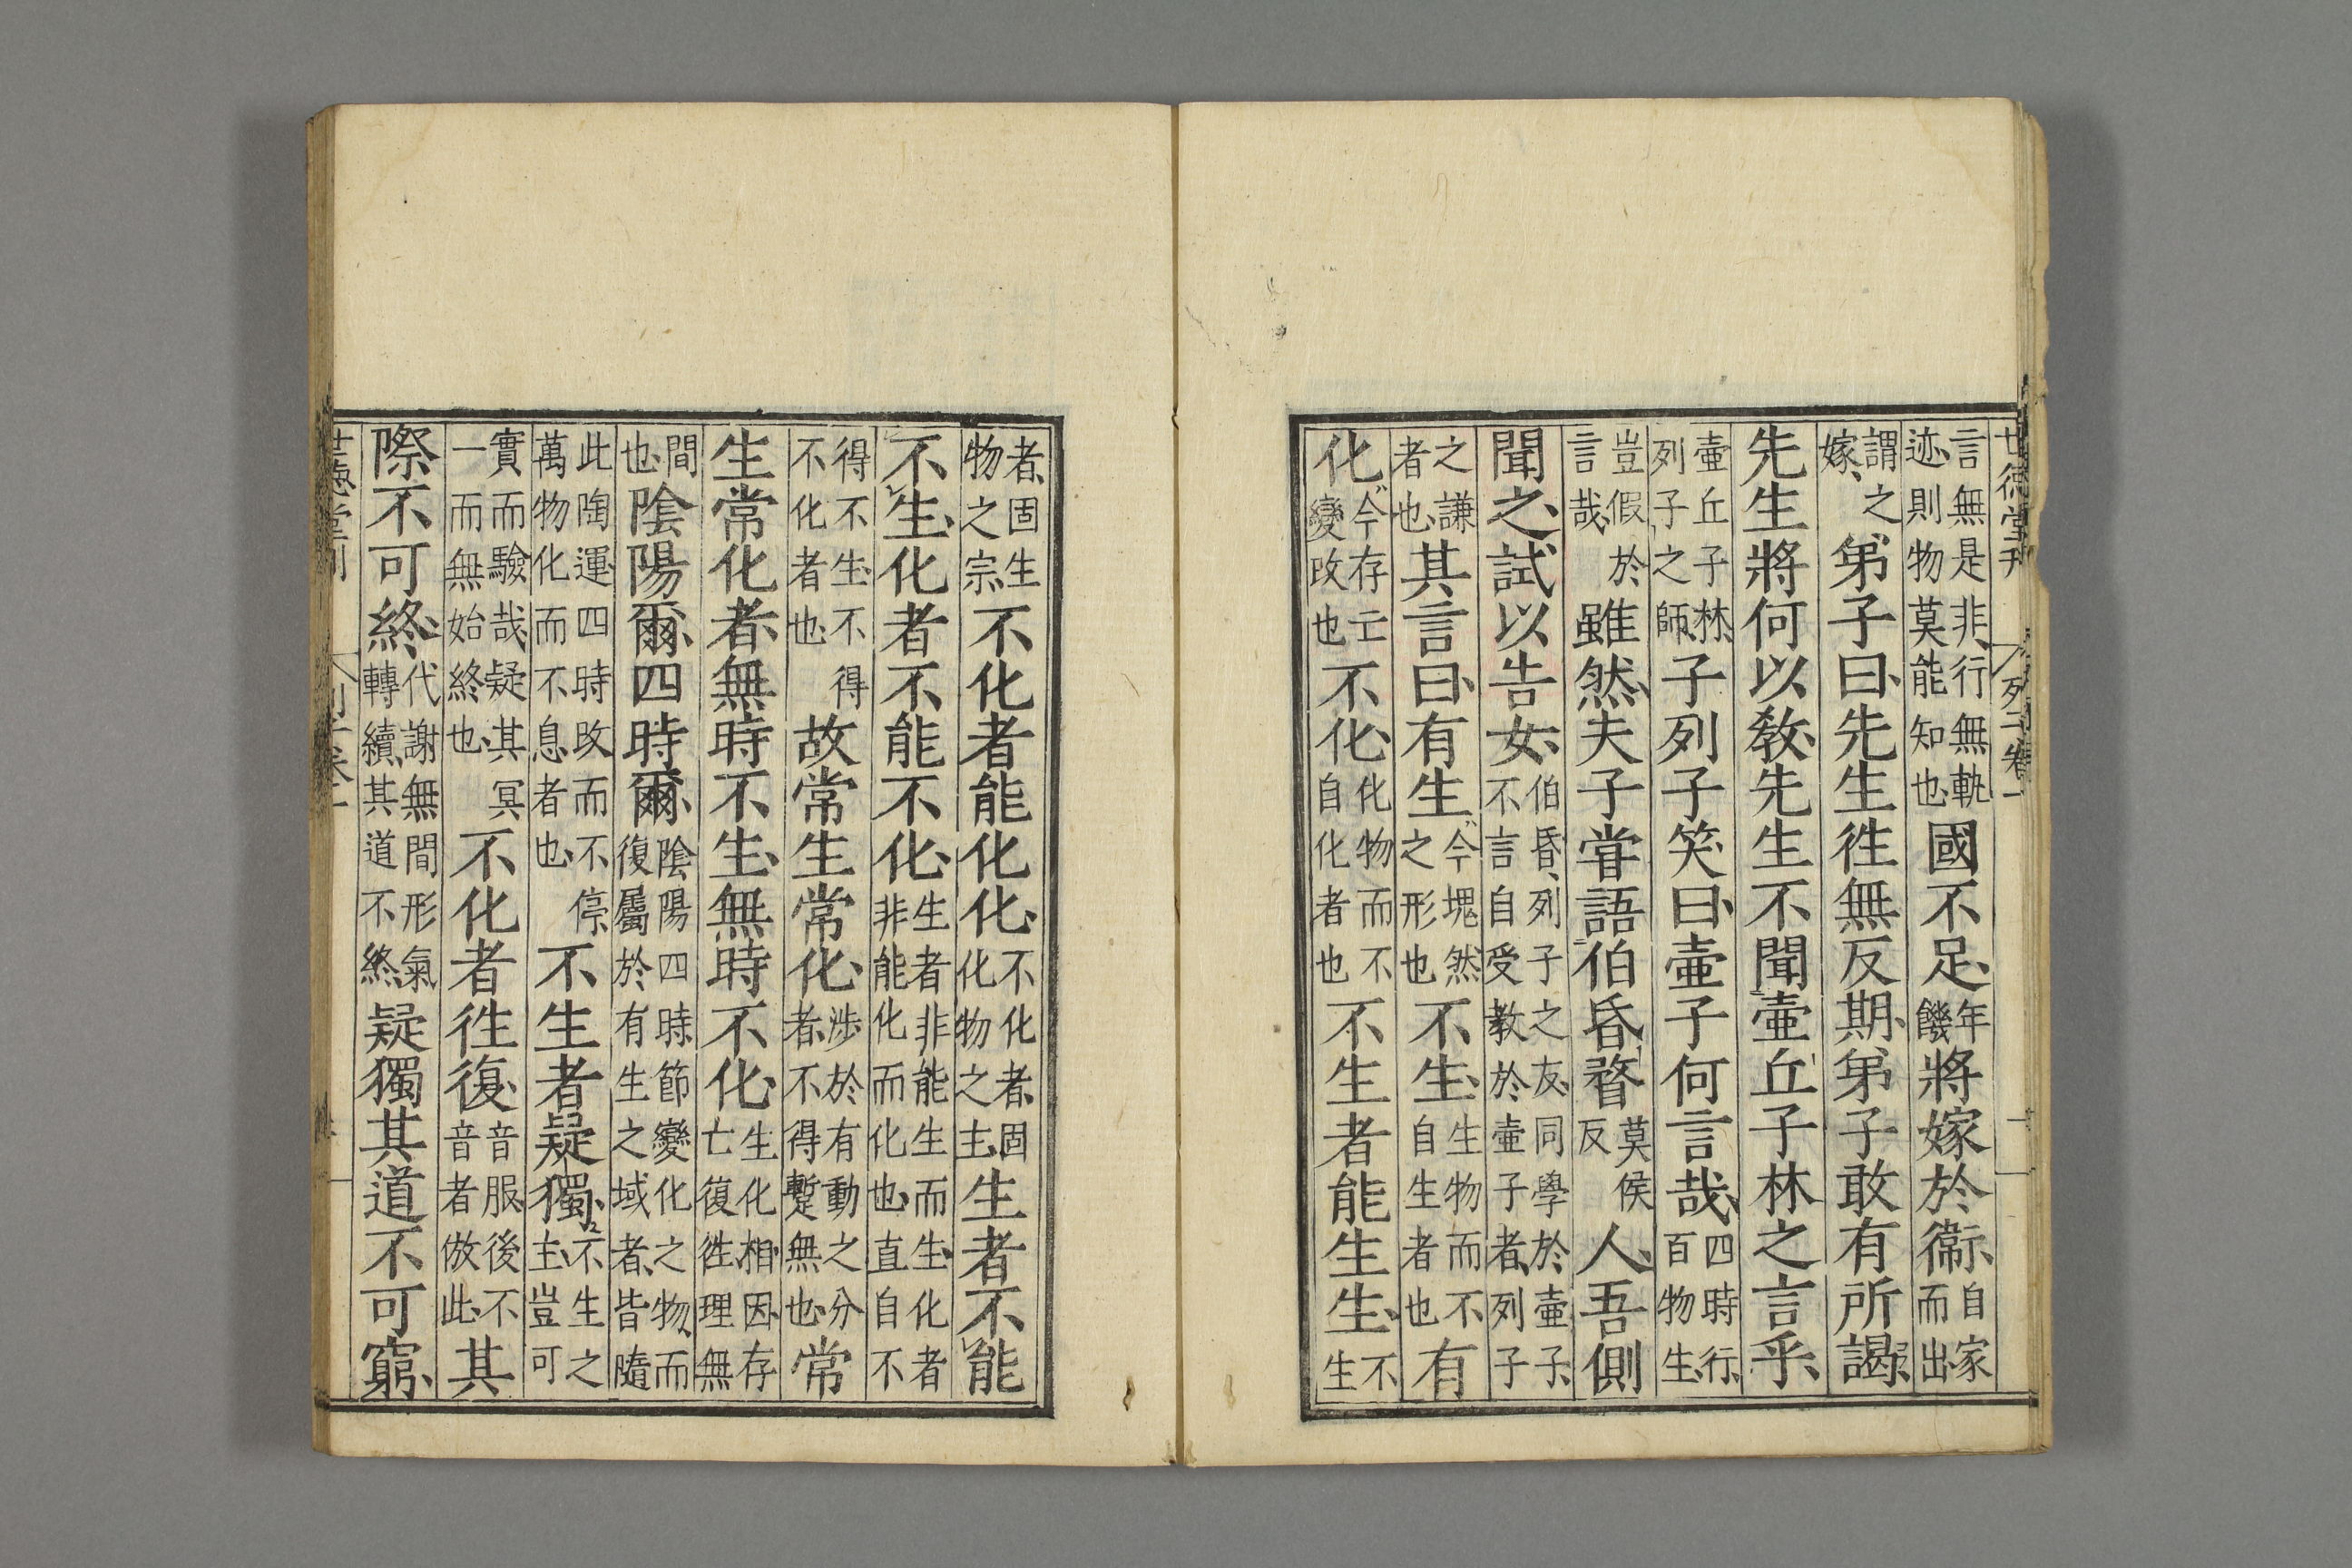 世德堂刊 列子卷一 一
言無是非、行無軌迹、則物莫能知也、國不足、年饑將嫁於衞、自家而出
謂之嫁、弟子曰、先生徃無反期、弟子敢有所謁、
先生將何以敎、先生不聞壷丘子林之言乎、
壷丘子林、列子之師、子列子笑曰、壷子何言哉、四時行、百物生、
豈假於言哉、雖然、夫子甞語伯昏瞀莫侯反人、吾側
聞之、試以告女、伯昏、列子之友、同學於壷子、不言自受教於壷子者、列子
之謙者也、其言曰、有生今塊然之形也不生、生物而不自生者也有
化今存亡變改也不化、化物而不自化者也不生者能生生、不生
者、固生物之宗不化者能化化、不化者、固化物之主、生者不能
不生、化者不能不化、生者非能生而生、化者非能化而化也、直自不
得不生、不得不化者也、故常生常化、涉於有動之分者、不得蹔無也、常
生常化者、無時不生、無時不化、生化相因、存亡復徃、理無
間也、陰陽爾、四時爾、陰陽四時節變化之物、而復屬於有生之域者、皆隨
此陶運四時改而不停、萬物化而不息者也、不生者疑獨、不生之主、豈可
實而驗哉、疑其冥一而無始終也、不化者徃復、音服後不音者倣此、其
際不可終、代謝無間形氣轉續、其道不終疑獨其道不可窮、
世德堂刊 列子卷一